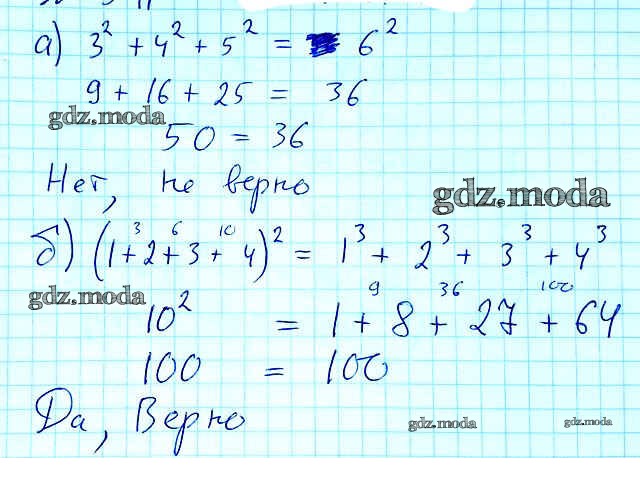 а) 3² + 4² + 5² = 6²
9 + 16 + 25 = 36
gdz.moda
50 = 36
Нет, не верно
gdz.moda
3 6 10
б) (1 + 2 + 3 + 4)² = 1³ + 2³ + 3³ + 4³
gdz.moda
9 36 100
10² = 1 + 8 + 27 + 64
100 = 100
Да, Верно
gdz.moda
gdz.moda